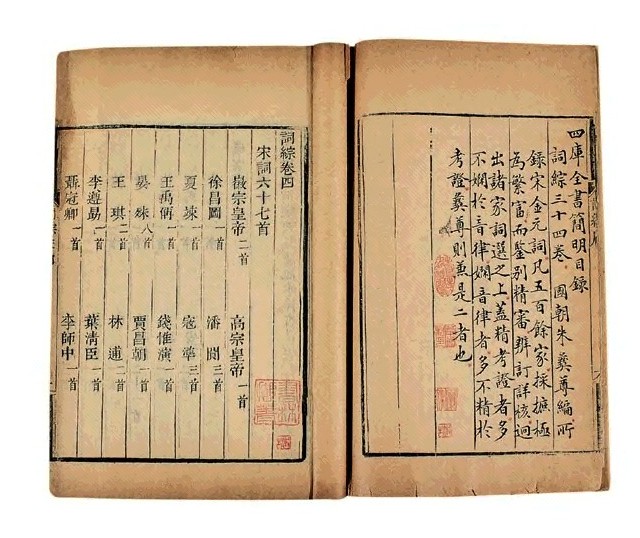 四庫全書簡明目錄
詞綜三十四卷 國朝朱彝尊編所
錄宋金元詞凡五百餘家採摭極
為繁富而鑒別精審辨訂詳核迥
出諸家詞選之上蓋精考證者多
不嫻於音律嫻音律者多不精於
考證彝尊則兼是二者也
詞綜卷四
宋詞六十七首
徽宗皇帝二首 高宗皇帝一首
徐昌圖一首 潘閬三首
夏竦一首 寇準三首
王禹偁一首 錢惟演一首
晏殊八首 賈昌朝一首
王琪二首 林逋二首
李遵勗一首 葉清臣一首
聶冠卿一首 李師中一首